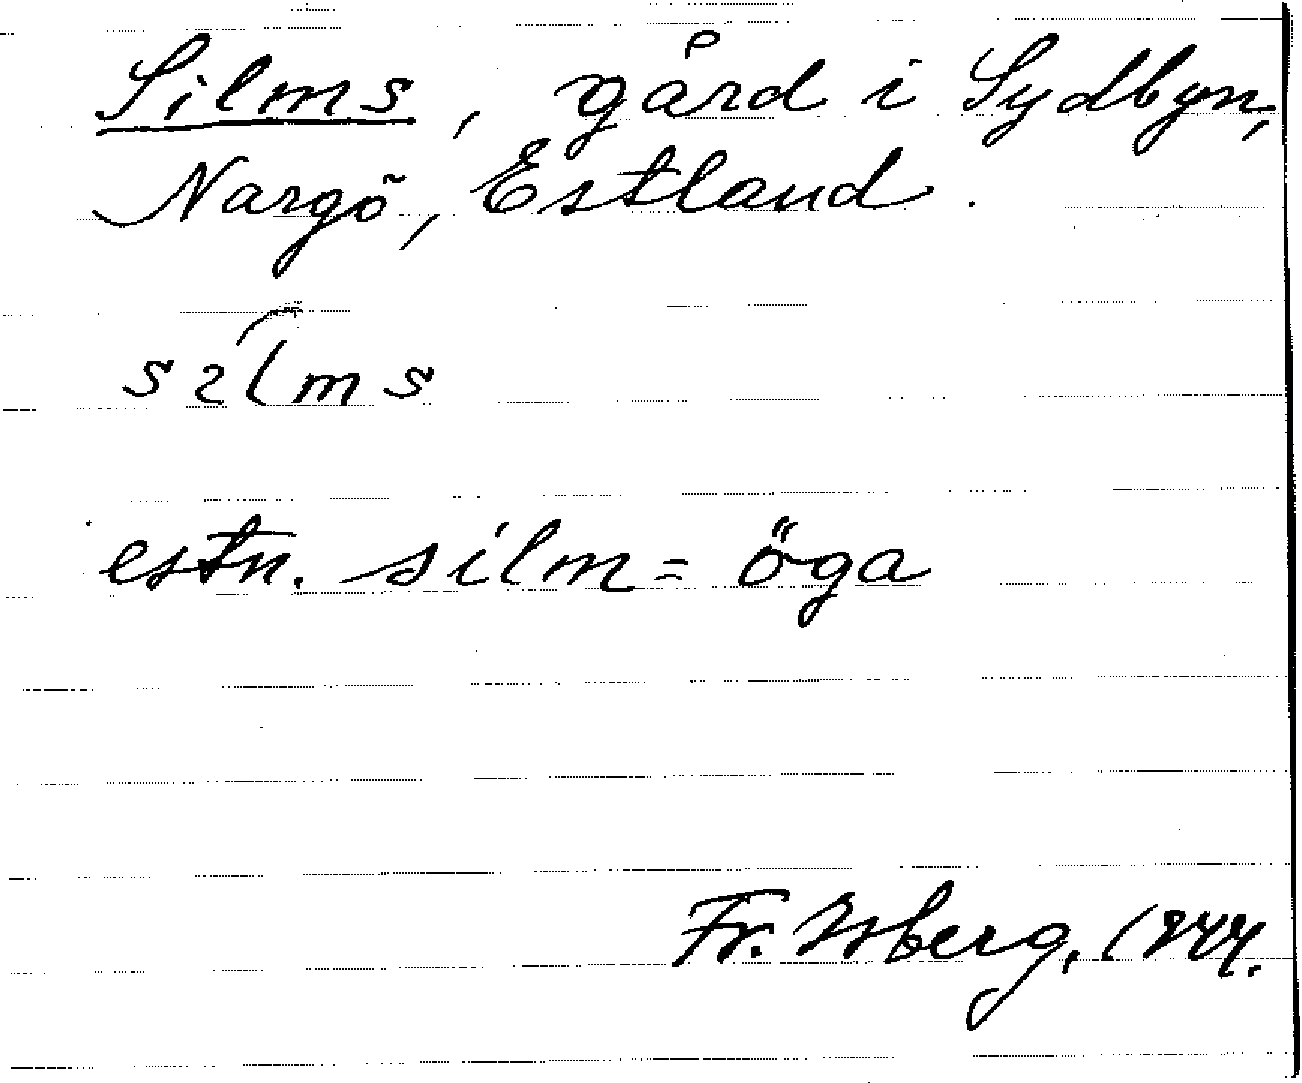 Silms, gård i Sydbyn,
Nargö, Estland.
sɩlms
estn. silm = öga
Fr. Isberg, 1944.